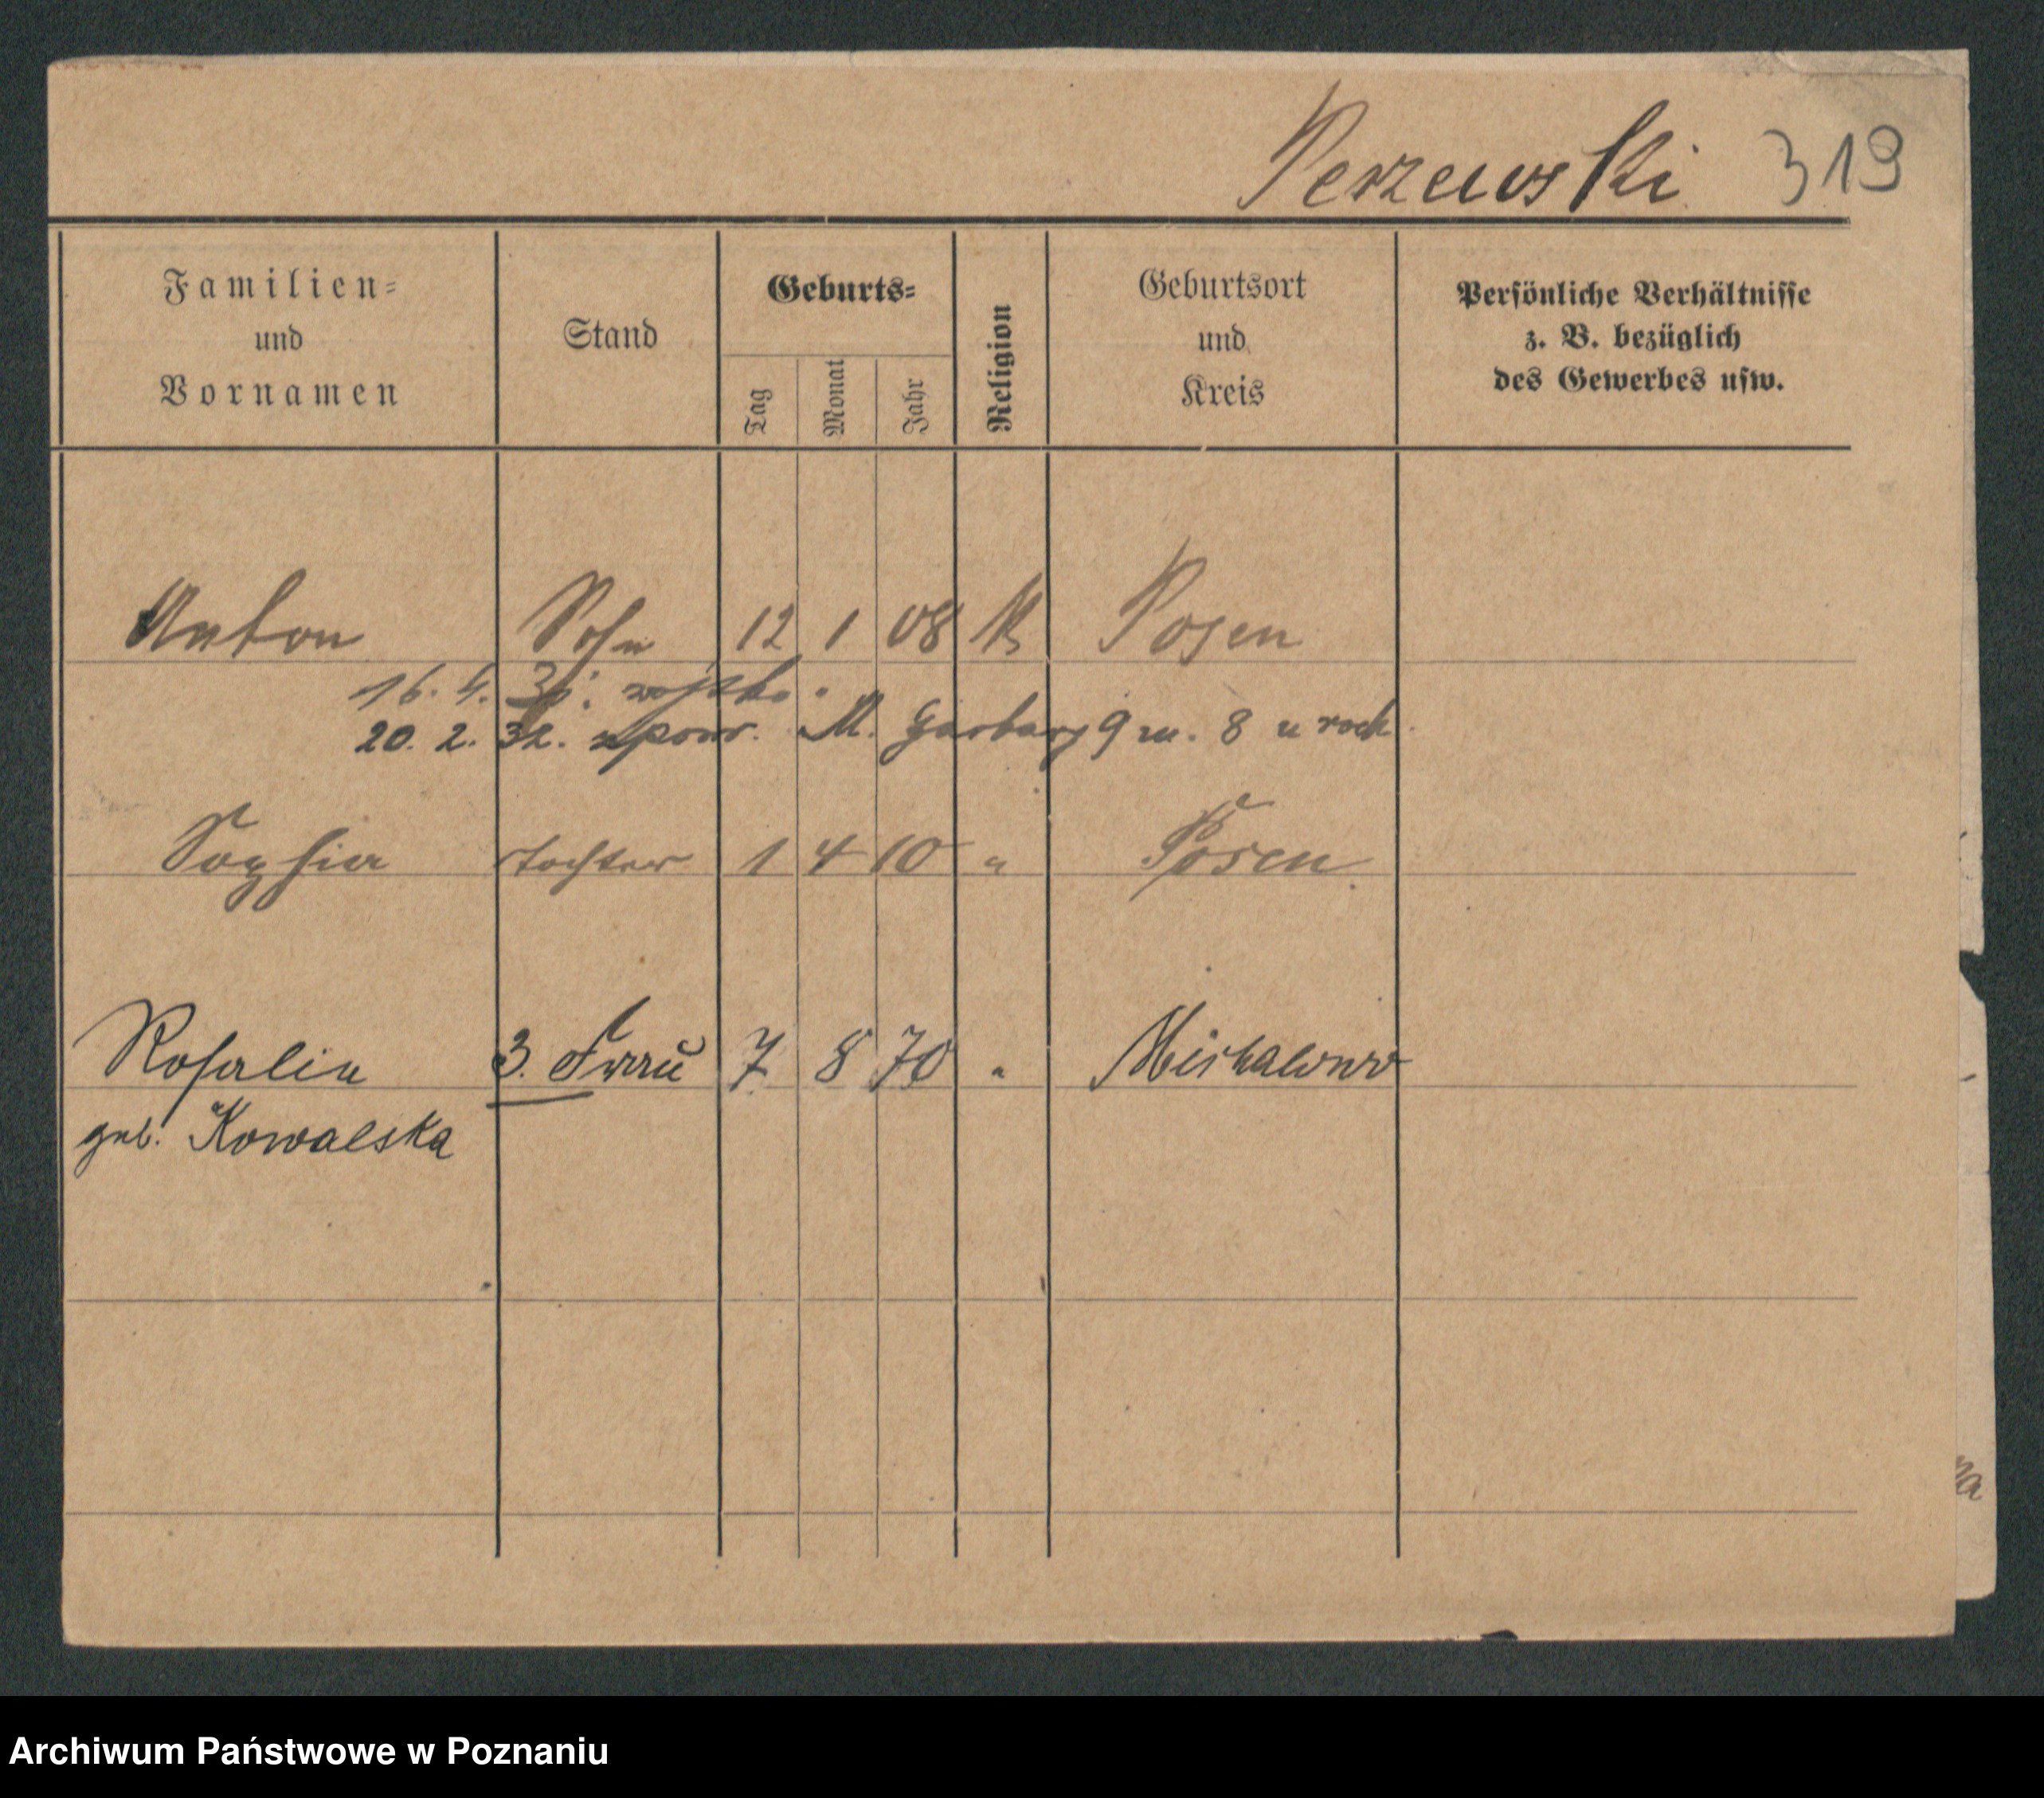 Perzewski 319
Familien= und Vornamen
Stand
Geburts=
Tag Monat Jahr
Religion
Geburtsort und Kreis
Persönliche Verhältnisse z. B. bezüglich des Gewerbes usw.
Anton Sohn 12 1 08 K Posen
16. 4. 31. wojsko.
20. 2. 32. zpowr. M. Garbary 9 m. 8 u rodz.
Sophia Tochter 1 4 10 " Posen
Rosalia 3. Frau 7 8 70 "
geb. Kowalska
Archiwum Państwowe w Poznaniu